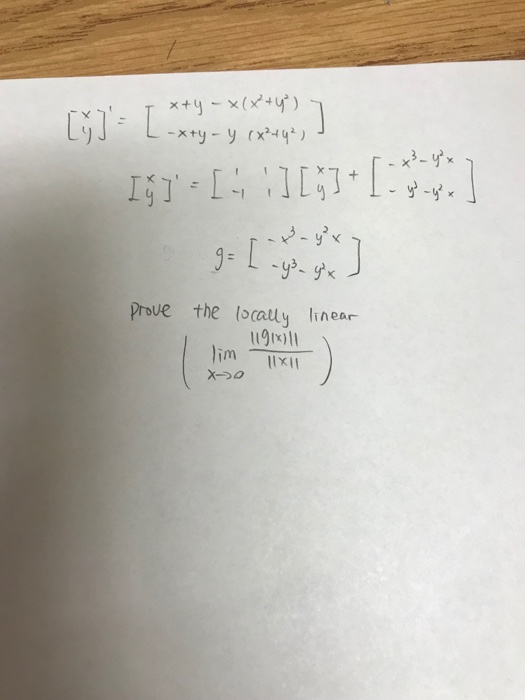 [x y]' = [ x+y - x(x²+y²) -x+y - y (x²+y²) ]
[x y]' = [ 1 1 -1 1 ] [x y] + [ -x³ - y²x - y³ - y²x ]
g = [ -x³ - y²x -y³ - y²x ]
prove the locally linear
( lim x→0 ||g(x)|| / ||x|| )